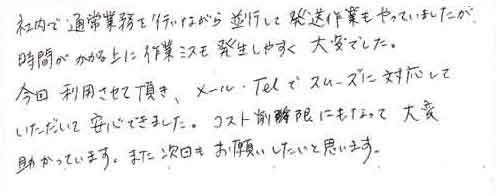 社内で通常業務を行いながら並行して発送作業もやっていましたが、
時間がかかる上に作業ミスも発生しやすく大変でした。
今回利用させて頂き、メール・Telでスムーズに対応して
いただいて安心できました。コスト削減にもなって大変
助かっています。また次回もお願いしたいと思います。